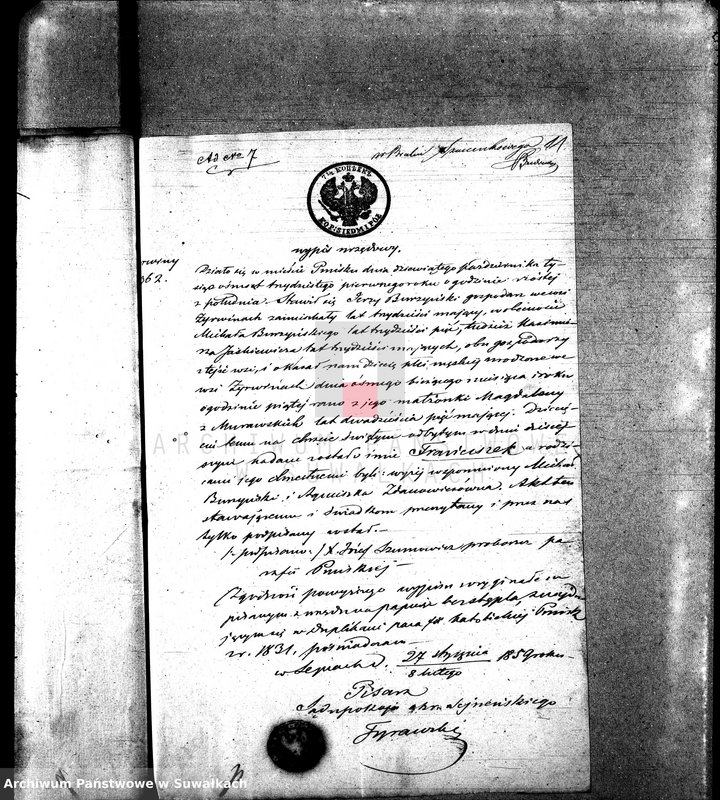 Ad No 7
w Pralni Szanenkowego 11
7½ KOPIEEK
KOP: SIEDM I PÓŁ
wypis urzędowy.
362.
Działo się w mieście Puńsku dnia dziewiątego Października ty-
siąc ośmset trzydziestego pierwszego roku o godzinie szóstej
z południa. Stawił się Jerzy Burzyński gospodarz we wsi
Żyrwinach zamieszkały lat trzydzieści mający, w obecności
Michała Burzyńskiego lat trzydzieści pięć, tudzież Kazimie-
rza Jaśkiewicza lat trzydzieści mających, obu gospodarzy
z tejże wsi, i okazał nam dziecię płci męzkiej urodzone we
wsi Żyrwinach dnia ósmego bieżącego miesiąca i roku
o godzinie piątej rano z jego małżonki Magdaleny
z Murawskich lat dwadzieścia pięć mającej. Dziecię-
ciu temu na chrzcie świętym odbytym w dniu dzisiej-
szym nadane zostało imie Franciszek a rodzi-
cami jego chrzestnemi byli: wyżej wspomniony Michał
Burzyński, i Agnieszka Zdanowiczówna. Akt ten
stawającemu i świadkom przeczytany i przez nas
tylko podpisany został.—
/-podpisano:/ X. Józef Szumowicz proboszcz pa-
rafii Puńskiej—
Zgodność powyższego wypisu z oryginałem
pisanym z urzędu na papierze bez stępla znajdu-
jącym się w Duplikacie para fii Katolickiej Puńsk
z r. 1831, poświadczam—
w Sejnach d. 27 stycznia 1859 roku—
8 lutego
Pisarz
Sądu pokoju okru Sejneńskiego
Tyrawski
ARCHIWUM PAŃSTWOWE
W SUWAŁKACH
Archiwum Państwowe w Suwałkach